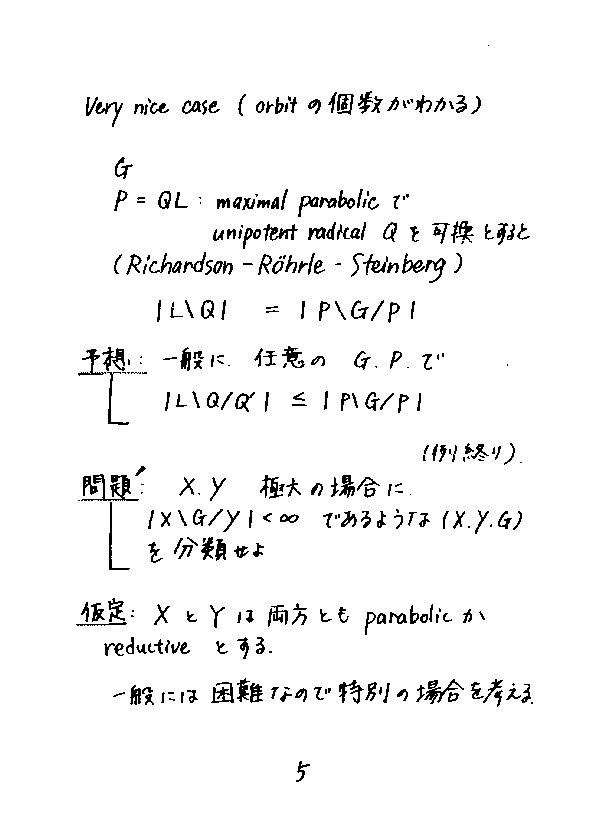 Very nice case ( orbit の個数がわかる)
G
P = QL : maximal parabolic で
unipotent radical Q を可換とすると
(Richardson - Röhrle - Steinberg)
|L\Q| = |P\G/P|
予想: 一般に. 任意の G. P. で
|L\Q/Q'| ≤ |P\G/P|
(例終り).
問題': X. Y 極大の場合に.
|X\G/Y| < ∞ であるような (X.Y.G)
を分類せよ
仮定: X と Y は両方とも parabolic か
reductive とする.
一般には困難なので特別の場合を考える.
5